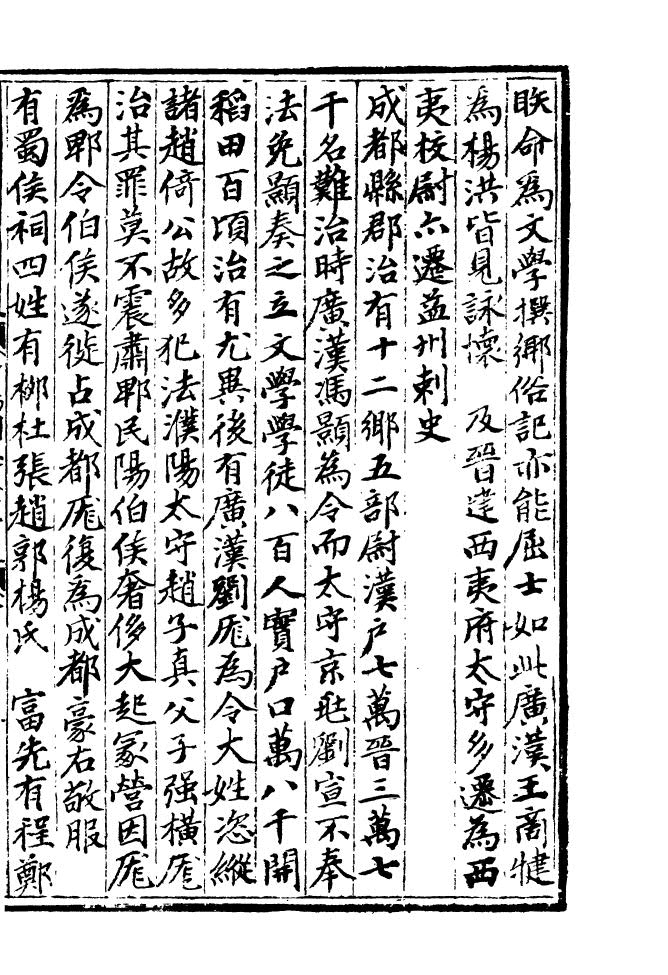 昳命為文學撰鄉俗記亦能屈士如此廣漢王商犍
為楊洪皆見詠懷　及晉建西夷府太守多遷為西
夷校尉亦遷益州刺史
成都縣郡治有十二鄉五部尉漢戶七萬晉三萬七
千名難治時廣漢馮顥為令而太守京兆劉宣不奉
法免顥奏之立文學學徒八百人實戶口萬八千開
稻田百頃治有尤異後有廣漢劉厖為令大姓恣縱
諸趙倚公故多犯法濮陽太守趙子真父子强橫厖
治其罪莫不震肅郫民陽伯侯奢侈大起冢營因厖
為郫令伯侯遂徙占成都厖復為成都豪右敬服
有蜀侯祠四姓有柳杜張趙郭楊氏　富先有程鄭